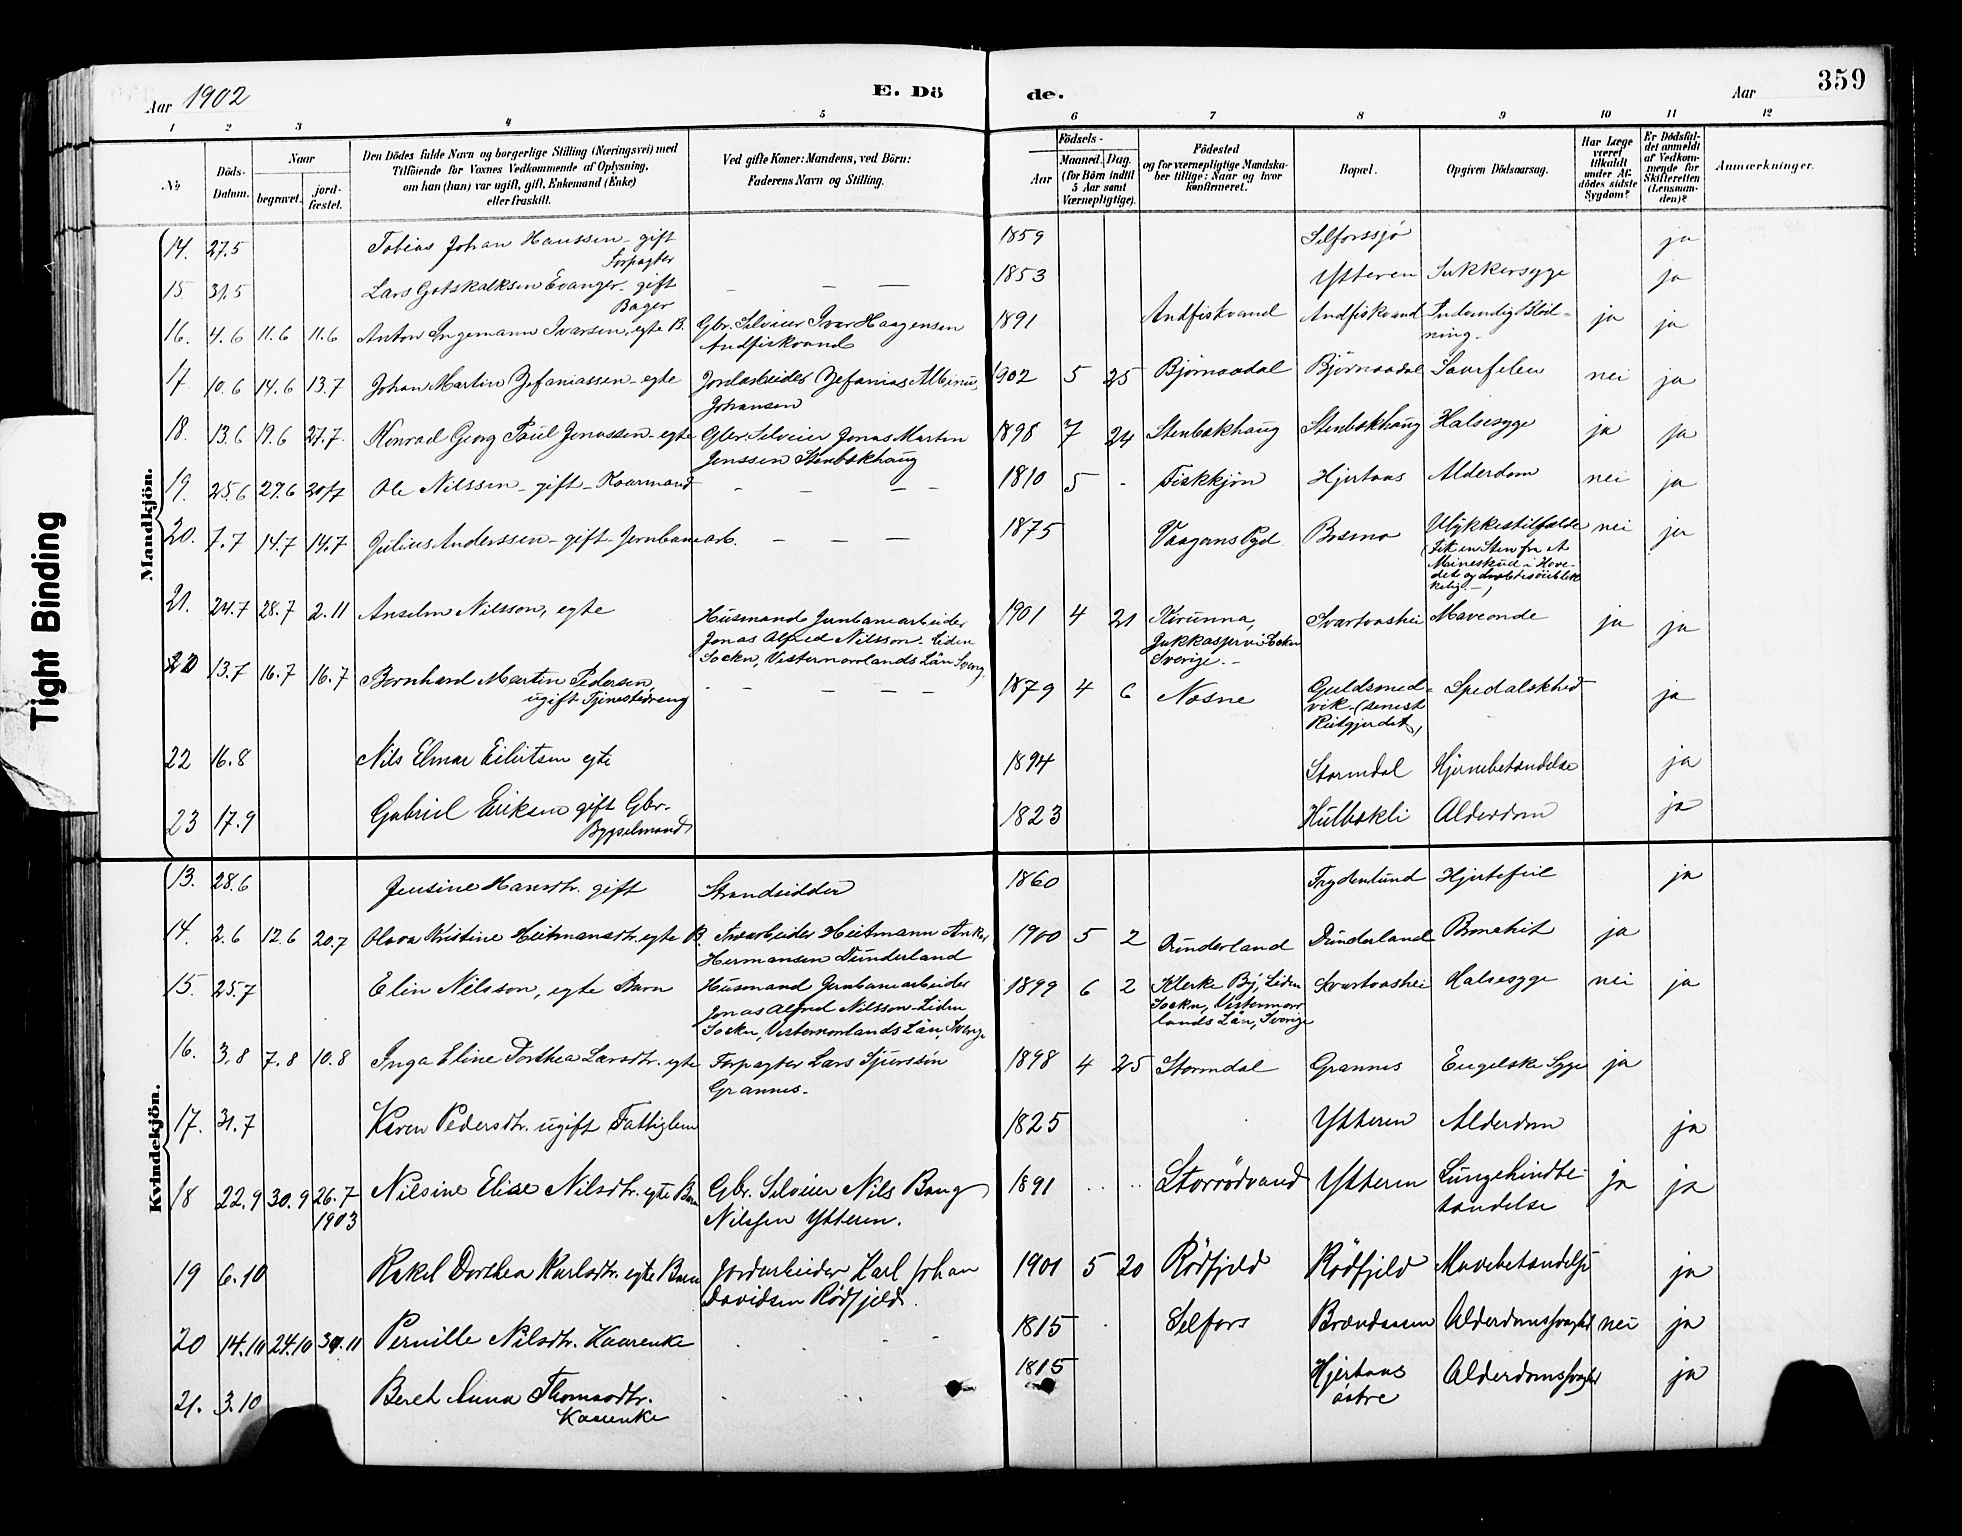 Aar 1902
E. Dö
de.
Aar
359
1 2 3 4 5 6 7 8 9 10 11 12
№
Döds-
Datum.
Naar
begravet.
jord-
fæstet.
Den Dödes fulde Navn og borgerlige Stilling (Næringsvei) med
Tilföiende for Voxnes Vedkommende af Oplysning,
om han (hun) var ugift, gift, Enkemand (Enke)
eller fraskilt.
Ved gifte Koner: Mandens, ved Börn:
Faderens Navn og Stilling.
Födsels-
Aar
Maaned. Dag.
(for Börn indtil
5 Aar samt
Værnepligtige).
Födested
og for værnepligtige Mandska-
ber tillige: Naar og hvor
konfirmeret.
Bopæl.
Opgiven Dödsaarsag.
Har Læge
været
tilkaldt
under Af-
dödes sidste
Sygdom?
Er Dödsfal-
det anmeldt
af Vedkom-
mende for
Skifteretten
(Lensman-
den)?
Anmærkninger.
Mandkjön.
14. 27.5 Tobias Johan Hanssen - gift 1859 Selforssjö ja
Forpagter
15. 31.5 Lars Gotskalksen Evanger - gift — — — 1853 Ytteren Sukkersyge ja
Bager
16. 4.6 11.6 11.6 Anton Ingemann Ivarsen, egte B. Gbr. Selveier Ivar Haagensen 1891 Andfiskvand Andfiskvand Indvendig Blöd- ja ja
Andfiskvand ning.
17 10.6 14.6 13.7 Johan Martin Zefaniassen - egte Jordarbeider Zefanias Albinus 1902 5 25 Björnaadal Björnaadal nei ja
Johansen
18. 13.6 19.6 27.7. Konrad Georg Paul Jonassen - egte Gbr. Selveier Jonas Martin 1898 7 24 Stenbakhaug Stenbakhaug Halsesyge ja ja
Jenssen Stenbakhaug
19. 25.6 29.6 20/7 Ole Nilssen - gift - Kaarmand — — — — 1810 5 - Fiskkjön Hjertaas Alderdom nei ja
20. 7.7 14.7 14.7 Julius Anderssen - gift - Jernbanearb. — — — 1875 Vaagens Pgd. Bosmo Ulykkestilfælde nei ja
(Fik en Sten fra et
Mineskud i Hove-
det og
21. 24.7 28.7 2.11 Anselm Nilsson, egte Husmand Jernbanearbeider 1901 4 21 Kirunna, Svartvashei Maveonde ja ja
Jonas Alfred Nilsson. Liden Jukkasjervi Sokn
Sockn, Vesternorrlands Län Sverig. Sverige. -
13.7 16.7 16.7 Bernhard Martin Pedersen — — — — — 1879 4 6 Næsne Guldsmed- Spedalskhed ja
ugift Tjenestedreng vik - (senest
Reitgjerdet)
22 16.8 Nils Elmar Eilertsen egte 1894 Stormdal Hjernebetændelse ja
23 17.9 Gabriel Eriksen gift Gbr. 1823 Hulbækli Alderdom ja
Bygselmand
Kvindekjön.
13. 28.6 Jensine Hansdtr. gift Strandsidder 1860 Frydenlund Hjertefeil ja
14. 2.6 12.6 20.7 Olava Kristine Heitmansdtr. egte B. Heitmann Anker 1900 5 2 Dunderland Dunderland Bronchit ja
Hermansen Dunderland
15. 25.7 Elin Nilsson, egte Barn Husmand Jernbanearbeider 1899 6 2 Klerke By, Liden Svartvashei Halsesyge nei ja
Jonas Alfred Nilsson - Liden Sockn, Vesternorr
Sockn, Vesternorrlands Län, Sverige lands Län, Sverige
16. 3.8 7.8 10.8 Inga Eline Dorthea Larsdtr. egte Forpagter Lars Sjurssön 1898 4 25 Stormdal Grannes Engelske Syge ja
Grannes.
17. 31.7 Karen Pedersdtr. ugift Fattiglem 1825 Ytteren Alderdom ja
18 22.9 30.9 26.7 Nilsine Elise Nilsdtr. egte Barn Gbr. Selveier Nils Bang 1891 Storrödvand Ytteren Lungehindbe- ja ja
1903 Nilssen Ytteren. tændelse
19 6.10 Rakel Dorthea Karlsdtr. egte Barn Jordarbeider Karl Johan 1901 5 20 Rödfjeld Rödfjeld Mavebetændelse ja
Davidsen Rödfjeld.
20 14.10 24.10 30.11 Pernille Nilsdtr. Kaarenke 1815 Selfors Brændaasen Alderdomssvaghed nei ja
21. 3.10 Beret Anna Thomasdtr. 1815 Hjertaas Alderdomssvaghed ja
Kaarenke östre
Tight Binding